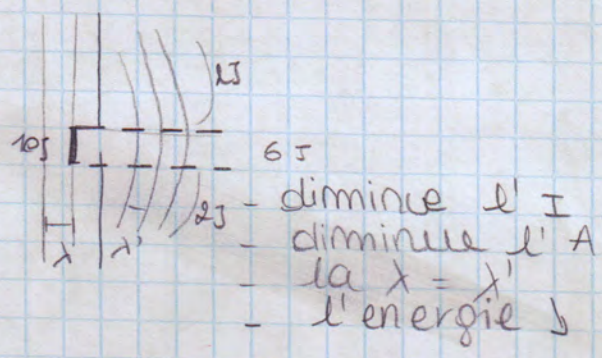 2J
10J
6 J
2J
λ
λ'
- dimminue l' I
- dimminue l' A
- la λ = λ'
- l'energie ↘